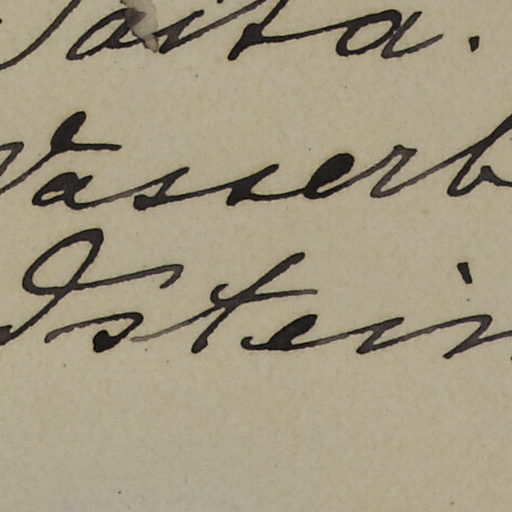 Vasta.
Wasserb
Istein